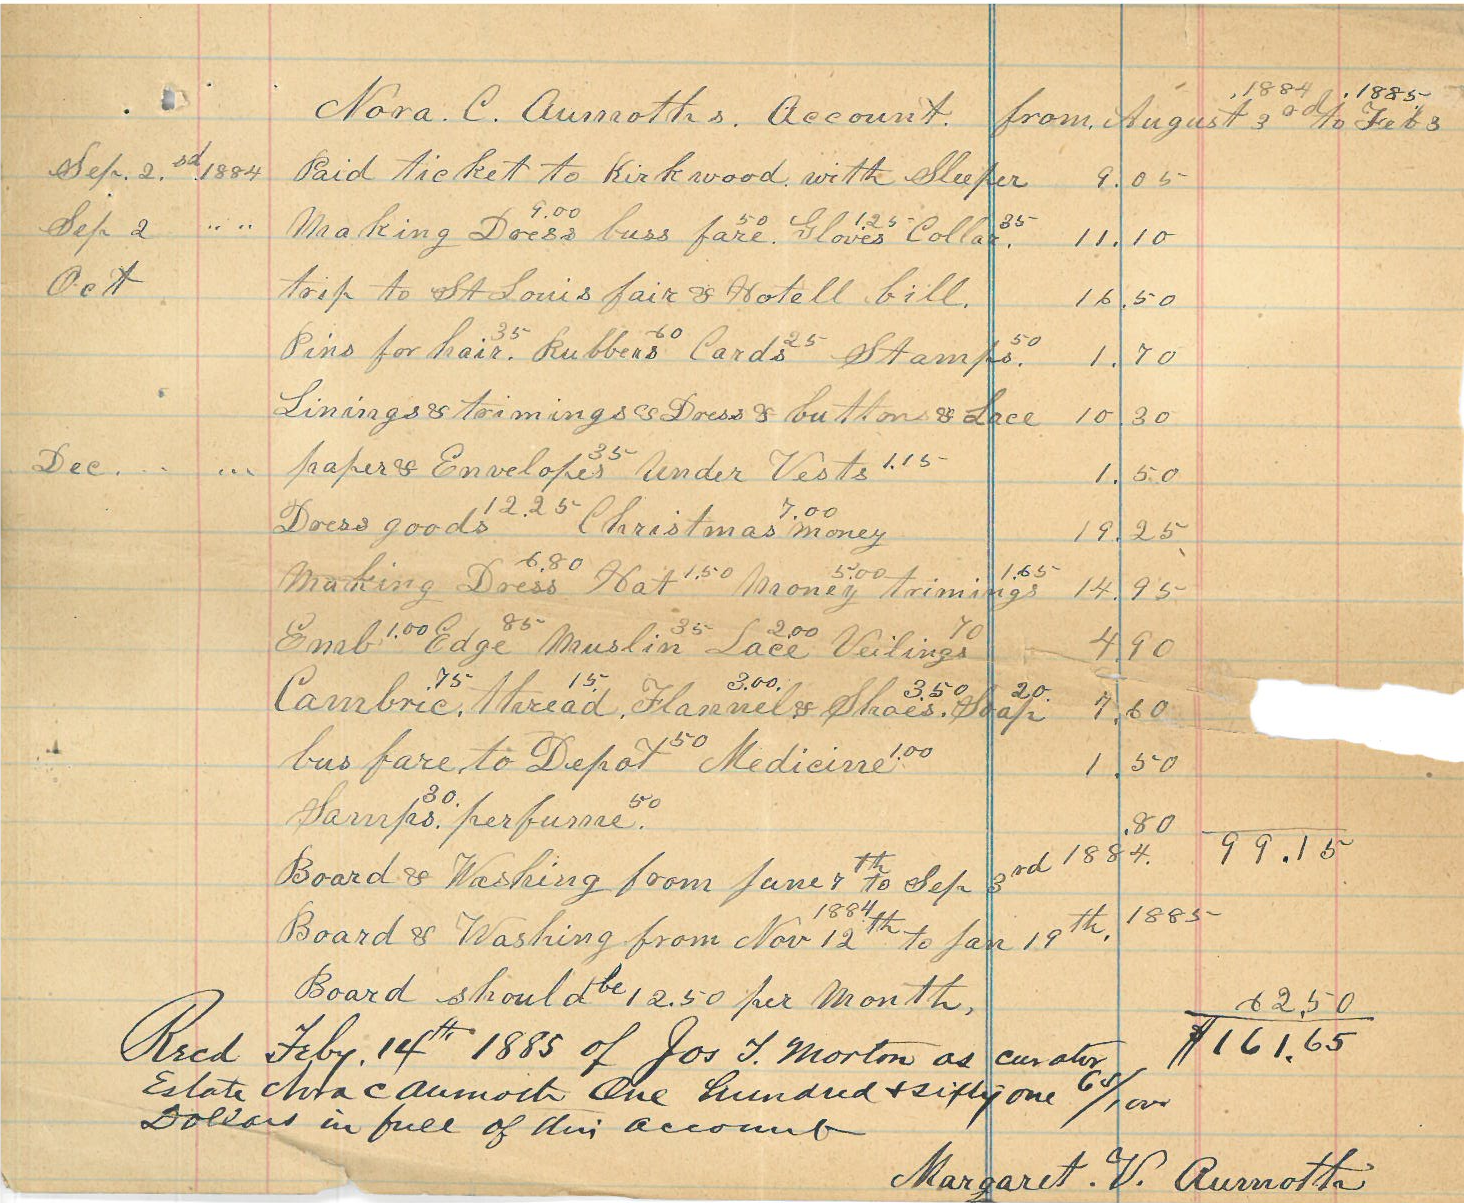 Nora. C. Aumoths. Account. from, August 3rd 1884 to Feb 3 1885
Sep. 2.sd 1884 Paid ticket to Kirkwood. with Sleeper 9.05
Sep 2 " " Making Dress 9.00 buss fare. 50 Gloves 1.25 Collar. 35 11.10
Oct trip to St Louis fair & Hotell bill. 16.50
Pins for hair. 35 Rubbers 60 Cards 25 Stamps. 50 1.70
Linings & trimings & Dress & buttons & Lace 10.30
Dec. " " paper & Envelopes 35 Under Vests 1.15 1.50
Dress goods 12.25 Christmas money 7.00 19.25
Making Dress 6.80 Hat 1.50 Money 5.00 trimings 1.65 14.95
Emb 1.00 Edge 85 Muslin 35 Lace 2.00 Veilings 70 4.90
Cambric. 75 thread. 15 Flannel & 3.00. Shoes. 3.50 Soap 20 7.60
bus fare, to Depot 50 Medicine 1.00 1.50
Samps. 30 perfume. 50 .80
99.15
Board & Washing from June 7th to Sep 3rd 1884.
Board & Washing from Nov 12th 1884 to Jan 19th, 1885
Board should be 12.50 per Month, 62.50
$161.65
Recd Feby. 14th 1885 of Jos T. Morton as curator
Estate Nora C Aumoth One hundred & sixty one 65/100
Dollars in full of this account
Margaret. V. Aumoth